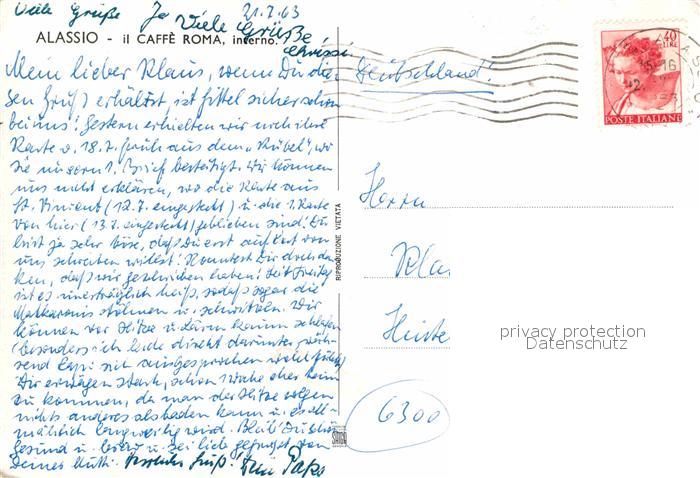 Viele Grüße Ja Viele Grüße 21.7.63
ALASSIO - il CAFFÈ ROMA, interno.
Christa
Mein lieber Klaus, wenn Du die-
sen Gruß erhältst, ist sicher schon
bei uns! Gestern erhielten wir noch ihre
Karte v. 18.7. früh aus dem „Kübel", wo
Sie unsern 1. Brief bestätigt. Wir können
uns nicht erklären, wo die Karte aus
St. Vincent (12.7. eingesteckt) u. die 1. Karte
von hier (13.7. eingesteckt) geblieben sind! Du
bist ja sehr böse, daß Du erst auf Post von
uns schreiben willst! Konntest Dir doch den-
ken, daß wir geschrieben haben! Seit Freitag
ist es unerträglich heiß, sodaß sogar die
stöhnen u. schwitzen. Wir
können vor Hitze u. Lärm kaum schlafen
(besonders ich leide direkt darunter, wäh-
rend sich ausgesprochen wohl fühlt)
Wir erwägen stark, schon 1 Woche eher heim
zu kommen, da man der Hitze wegen
nichts anderes als baden kann u. es all-
mählich langweilig wird. Bleib' Du schön
gesund u. brav u. sei lieb gegrüßt von
Deiner Mutti. Herzlichen Gruß! Dein Papa
Deutschland!
40
LIRE
POSTE ITALIANE
Herrn
Kla
6300
RIPRODUZIONE VIETATA
privacy protection
Datenschutz